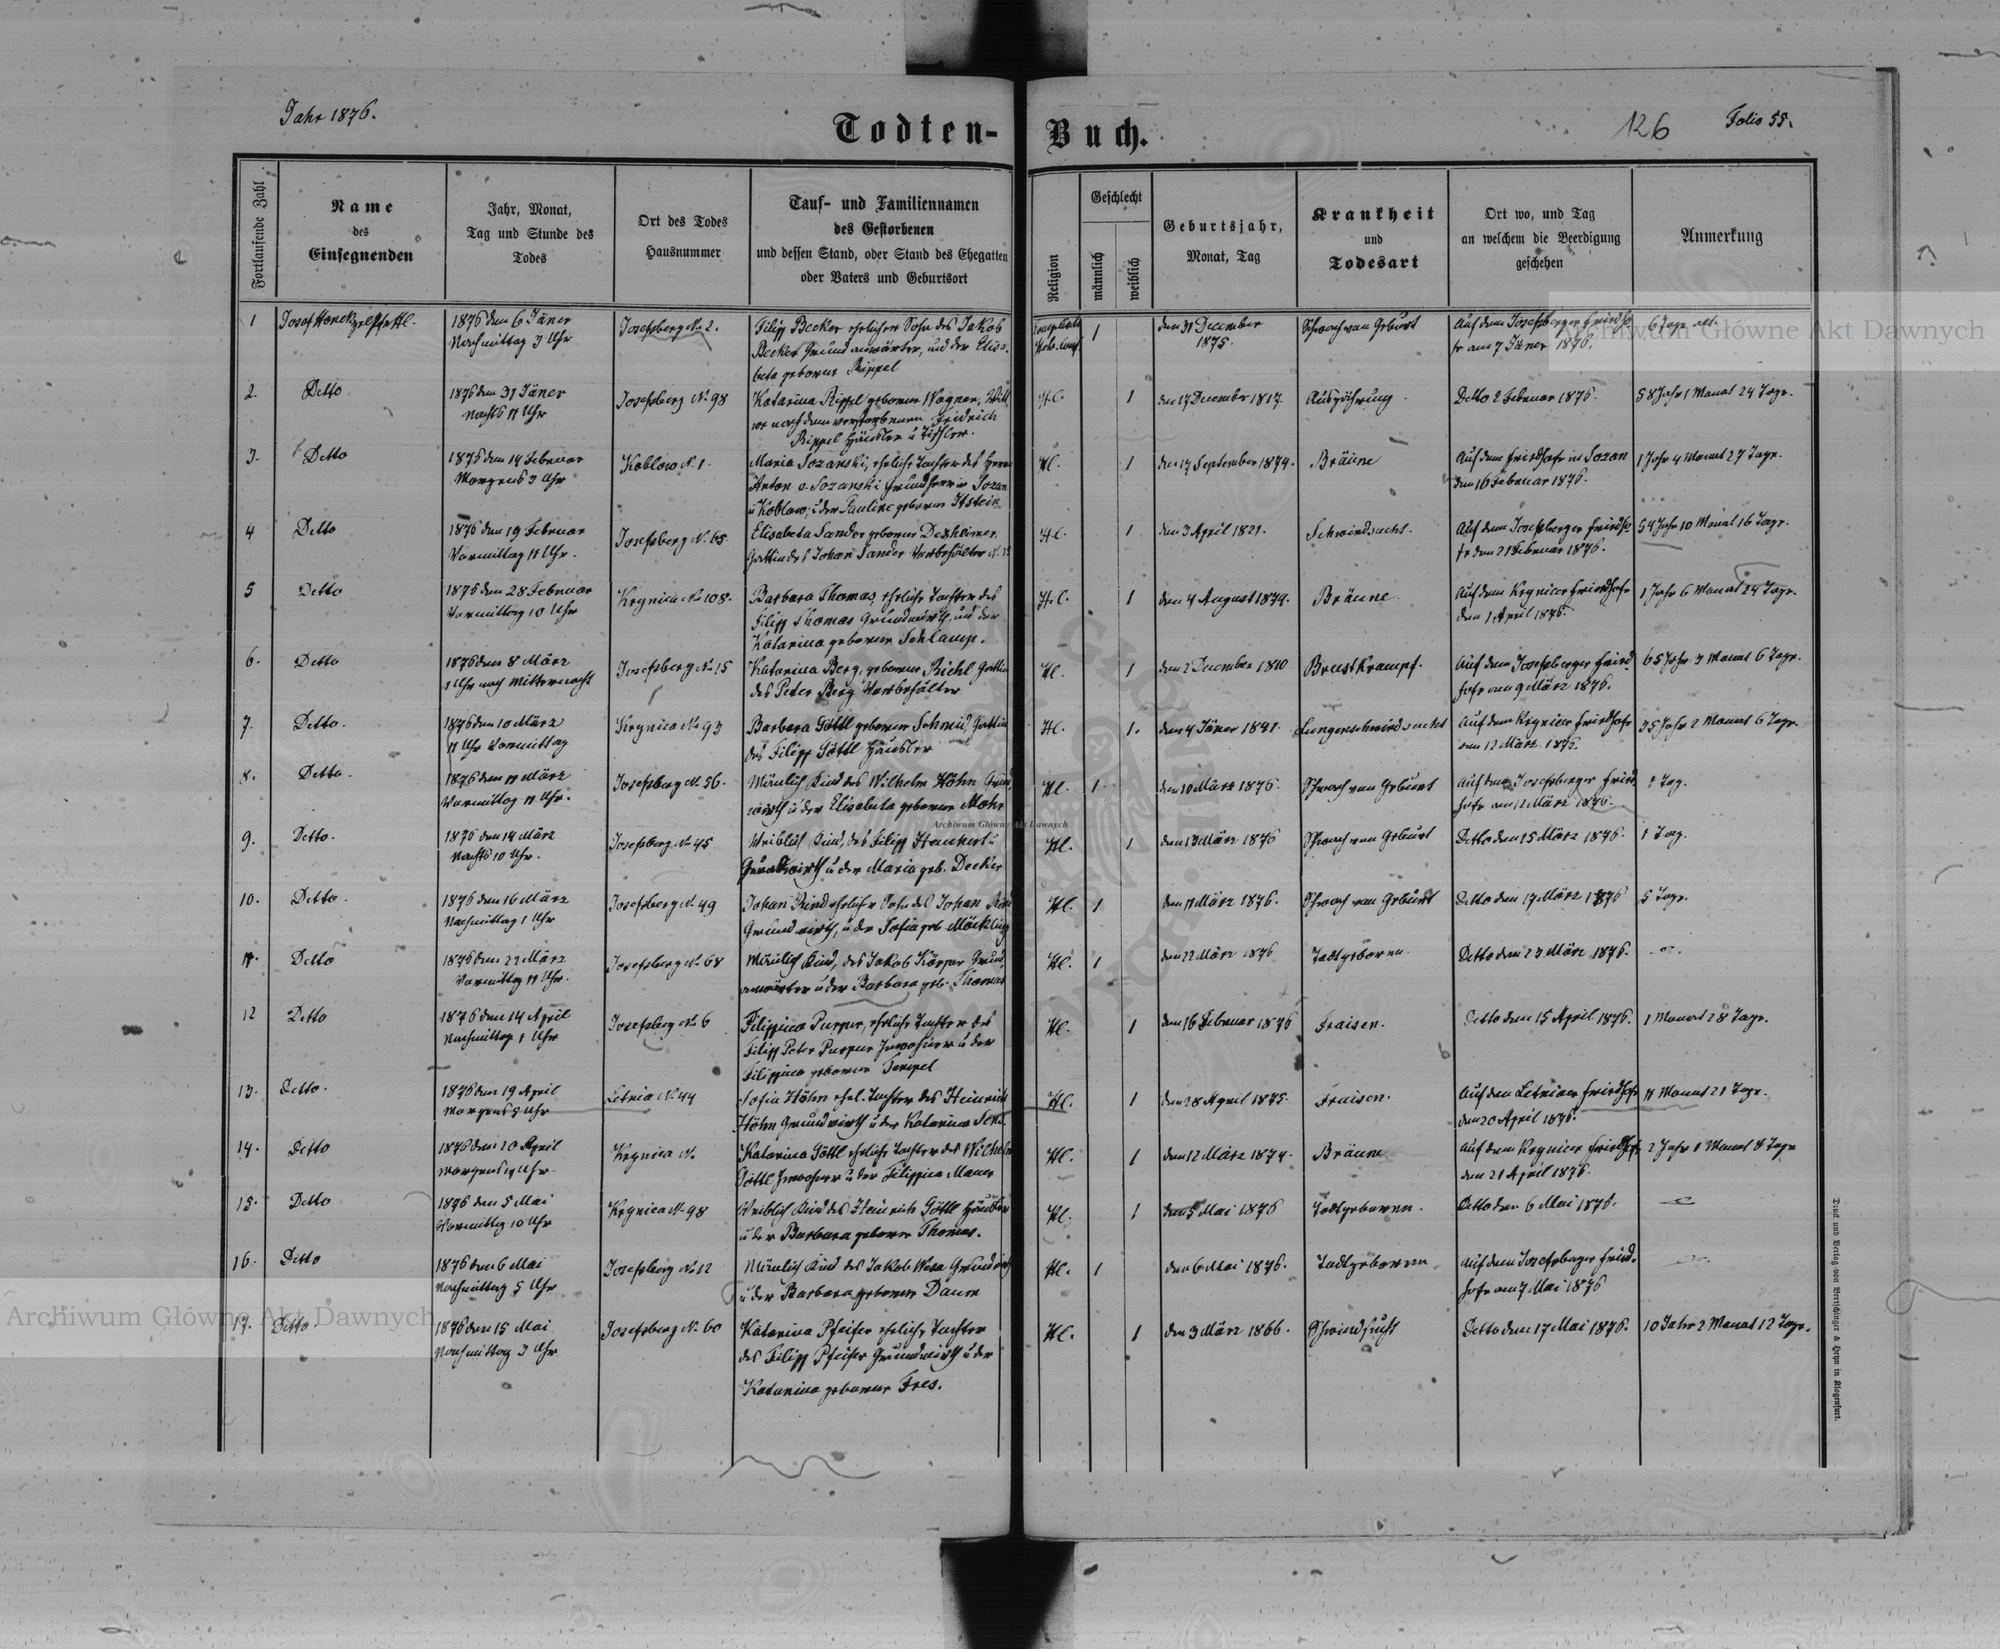 Jahr 1876.
Todten-Buch.
126
Folio 55.
Fortlaufende Zahl
Name
des
Einsegnenden
Jahr, Monat,
Tag und Stunde des
Todes
Ort des Todes
Hausnummer
Tauf- und Familiennamen
des Gestorbenen
und dessen Stand, oder Stand des Ehegatten
oder Vaters und Geburtsort
Religion
Geschlecht
männlich
weiblich
Geburtsjahr,
Monat, Tag
Krankheit
und
Todesart
Ort wo, und Tag
an welchem die Beerdigung
geschehen
Anmerkung
1
Josef
1876 den 6 Jäner
Nachmittag 3 Uhr
Josefsberg No 2.
Filipp Becker ehelicher Sohn des Jakob
Becker Grundanwärter, und der Elisa-
beta geborene Rippel
1
den 31 December
1875.
Schwach von Geburt
Auf dem Josefsberger Friedho-
fe am 7 Jäner 1876.
6 Tage alt.
2.
Detto
1876 den 31 Jäner
Nachts 11 Uhr
Josefsberg No 98
Katarina Rippel geborene Wagner, Witt-
we nach dem verstorbenen Fridrich
Rippel Häusler u Tischler.
H.C.
1
den 17 December 1817
Auszehrung
Detto 2 Februar 1876.
58 Jahr 1 Monat 24 Tage.
3.
Detto
1876 den 14 Februar
Morgens 3 Uhr
Koblow No 1.
Maria Sozanski, eheliche Tochter des Herrn
Anton v Sozanski Grundherr in Sozan
u Koblow, u der Pauline geborene Itstein
Hl.
1
den 17 September 1874.
Bräune
Auf dem Friedhofe in Sozan
den 16 Februar 1876.
1 Jahr 4 Monat 27 Tage.
4
Detto
1876 den 19 Februar
Vormittag 11 Uhr.
Josefsberg No 65.
Elisabeta Sander geborene Dexheimer
Gattin des Johan Sander Vorbehälter
H.C.
1
den 3 April 1821.
Schwindsucht.
Auf dem Josefsberger Friedho-
fe den 21 Februar 1876.
54 Jahr 10 Monat 16 Tage.
5
Detto
1876 den 28 Februar
Vormittag 10 Uhr
Krynica No 108.
Barbara Thomas, eheliche Tochter des
Filipp Thomas Grundwirth, und der
Katarina geborene Schlamp.
H.C.
1
den 4 August 1874.
Bräune
Auf dem Krynicer Friedhofe
den 1 April 1876.
1 Jahr 6 Monat 24 Tage.
6.
Detto
1876 den 8 März
1 Uhr nach Mitternacht
Josefsberg No 15
Katarina Berg, geborene Richl Gattin
des Peter Berg Vorbehälter
Hl.
1
den 2 December 1810
Brustkrampf.
Auf dem Josefsberger Fried
hofe am 9 März 1876.
65 Jahr 3 Monat 6 Tage.
7.
Detto.
1876 den 10 März
11 Uhr Vormittag
Krynica No 93
Barbara Göttl geborene Schmid, Gattin
des Filipp Göttl Häusler
Hl.
1.
den 4 Jäner 1841.
Lungenschwindsucht
Auf dem Krynicer Friedhofe
am 12 März 1876.
35 Jahr 2 Monat 6 Tage.
8.
Detto.
1876 den 11 März
Vormittag 11 Uhr.
Josefsberg No 56.
Mänlich Kind des Wilhelm Höhn Grund-
wirth u der Elisabeta geborene Mohr
Hl.
1
den 10 März 1876.
Schwach von Geburt
Auf dem Josefsberger Fried
hofe am 12 März 1876.
1 Tag.
9.
Detto.
1876 den 14 März
Nachts 10 Uhr.
Josefsberg No 45
Weiblich Kind, des Filipp
Grundwirth u der Maria geb. Decker
Hl.
1
den 13 März 1876
Schwach von Geburt
Detto den 15 März 1876.
1 Tag.
10.
Detto.
1876 den 16 März
Nachmittag 1 Uhr
Josefsberg No 49
Johan Rind eheliche Sohn des Johan Rind
Grundwirth, u der Sofia geb Möckling
Hl.
1
den 11 März 1876.
Schwach von Geburt
Detto den 17 März 1876
5 Tage.
11.
Detto
1876 den 22 März
Vormittag 11 Uhr.
Josefsberg No 68
Mänlich Kind, des Jakob Körper Grund
anwärter u der Barbara geb. Thomas
Hl.
1
den 22 März 1876
Todtgeboren.
Detto den 23 März 1876.
12
Detto
1876 den 14 April
Nachmittag 1 Uhr
Josefsberg No 6
Filippina Purpur, eheliche Tochter des
Filipp Peter Purpur Inwohner u der
Filippina geborene Tempel
Hl.
1
den 16 Februar 1876
Fraisen.
Detto den 15 April 1876.
1 Monat 28 Tage.
13.
Detto.
1876 den 19 April
Morgens 5 Uhr
Letnia No 44
Sofia Höhn ehel. Tochter des Heinrich
Höhn Grundwirth u der Katarina
Hl.
1
den 28 April 1875.
Fraisen.
Auf dem Letniaer Friedhofe
den 20 April 1876.
11 Monat 21 Tage.
14.
Detto
1876 den 20 April
Morgens Uhr.
Krynica No
Katarina Göttl eheliche Tochter des Wilhelm
Göttl Inwohner u der Filippina Mauer
Hl.
1
den 12 März 1874.
Bräune
Auf dem Krynicer Friedhofe
den 21 April 1876.
2 Jahr 1 Monat 8 Tage
15.
Detto
1876 den 5 Mai
Vormittag 10 Uhr
Krynica No 98
Weiblich Kind des Heinrich Göttl Häusler
u der Barbara geborene Thomas.
Hl.
1
den 5 Mai 1876
Todtgeboren.
Detto den 6 Mai 1876.
16.
Detto
1876 den 6 Mai
Nachmittag 5 Uhr
Josefsberg No 12
Mänlich Kind des Jakob Grundwirth
u der Barbara geborene Daum
Hl.
1
den 6 Mai 1876.
Todtgeboren
Auf dem Josefsberger Fried-
hofe am 7 Mai 1876
17.
Detto
1876 den 15 Mai
Nachmittag 3 Uhr
Josefsberg No 60
Katarina Pfeifer eheliche Tochter
des Filipp Pfeifer Grundwirth u der
Katarina geborene Fres.
Hl.
1
den 3 März 1866.
Schwindsucht
Detto den 17 Mai 1876.
10 Jahr 2 Monat 12 Tage.
Druck und Verlag von Bertschinger & Heyn in Klagenfurt.
Archiwum Główne Akt Dawnych
Archiwum Główne Akt Dawnych
Archiwum Główne Akt Dawnych